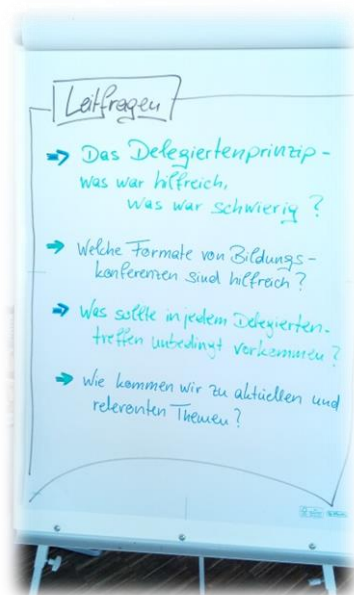 Leitfragen
Das Delegiertenprinzip -
was war hilfreich,
was war schwierig?
Welche Formate von Bildungs-
konferenzen sind hilfreich?
Was sollte in jedem Delegierten-
treffen unbedingt vorkommen?
Wie kommen wir zu aktuellen und
relevanten Themen?